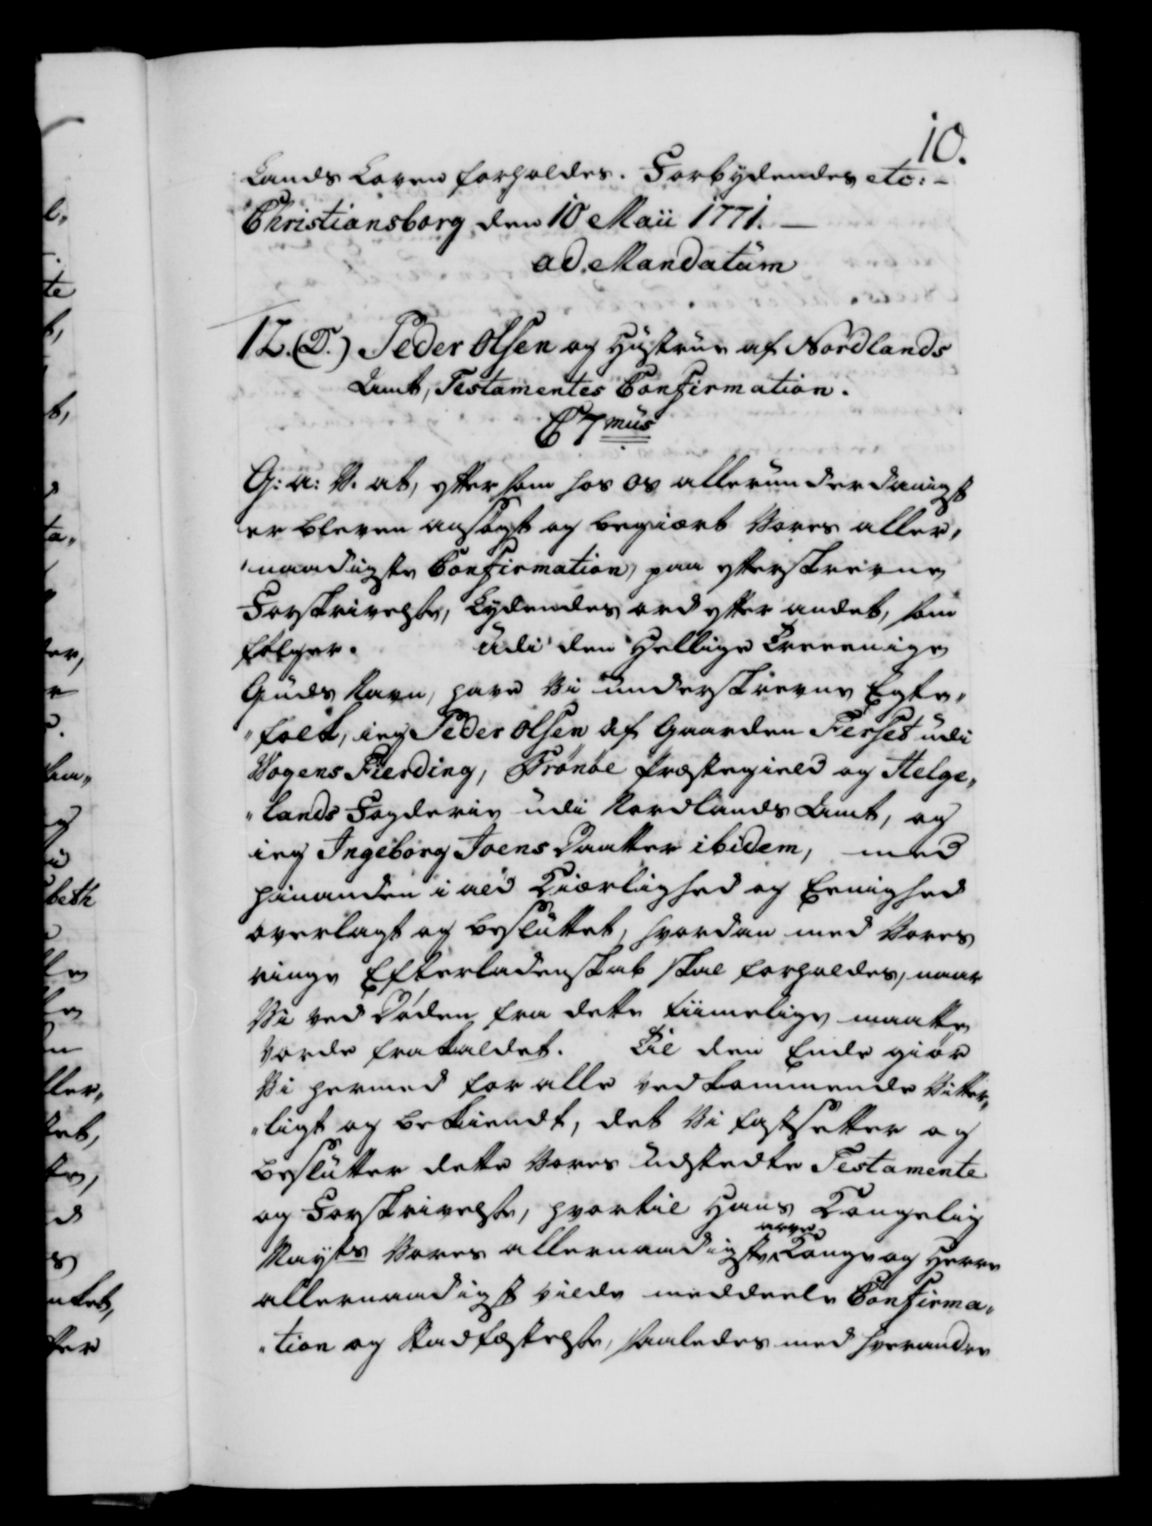 10.
Lands Loven forholdes. Forbydendes etc: –
Christiansborg den 10 Maii 1771. –
ad Mandatum
12. (D.) Peder Olsen og Hustrue af Nordlands
Amt, Testamentes Confirmation.
C 7mus
G: a: V. at, efter som hos os allerunderdanigst
er bleven ansøgt og begiært Vores aller,
"naadigste Confirmation paa efterskrevne
Forskrivelse, Lydendes ord efter andet, som
følger. Udi den Hellige Treenige
Guds Navn, have Vi underskrevne Egte,
"folk, ieg Peder Olsen af Gaarden Ferset udi
Vogens Fierding, Brönöe Præstegield og Helge,
"lands Fogderie udi Nordlands Amt, og
ieg Ingeborg Joens Daatter ibidem, med
hinanden i ald Kiærlighed og Eenighed
overlagt og besluttet, hvordan med Vores
ringe Efterladenskab skal forholdes, naar
Vi ved Døden fra dette timelige maatte
vorde frakaldet. Til den Ende giør
Vi hermed for alle vedkommende Vitter,
"ligt og bekiendt, det Vi fastsetter og
beslutter dette Vores udstedte Testamente
og Forskrivelse, hvortil Hans Kongelig
Mayts Vores allernaadigste arve Konge og Herre
allernaadigst vilde meddeele Confirma,
"tion og Stadfæstelse, saaledes med hverandre